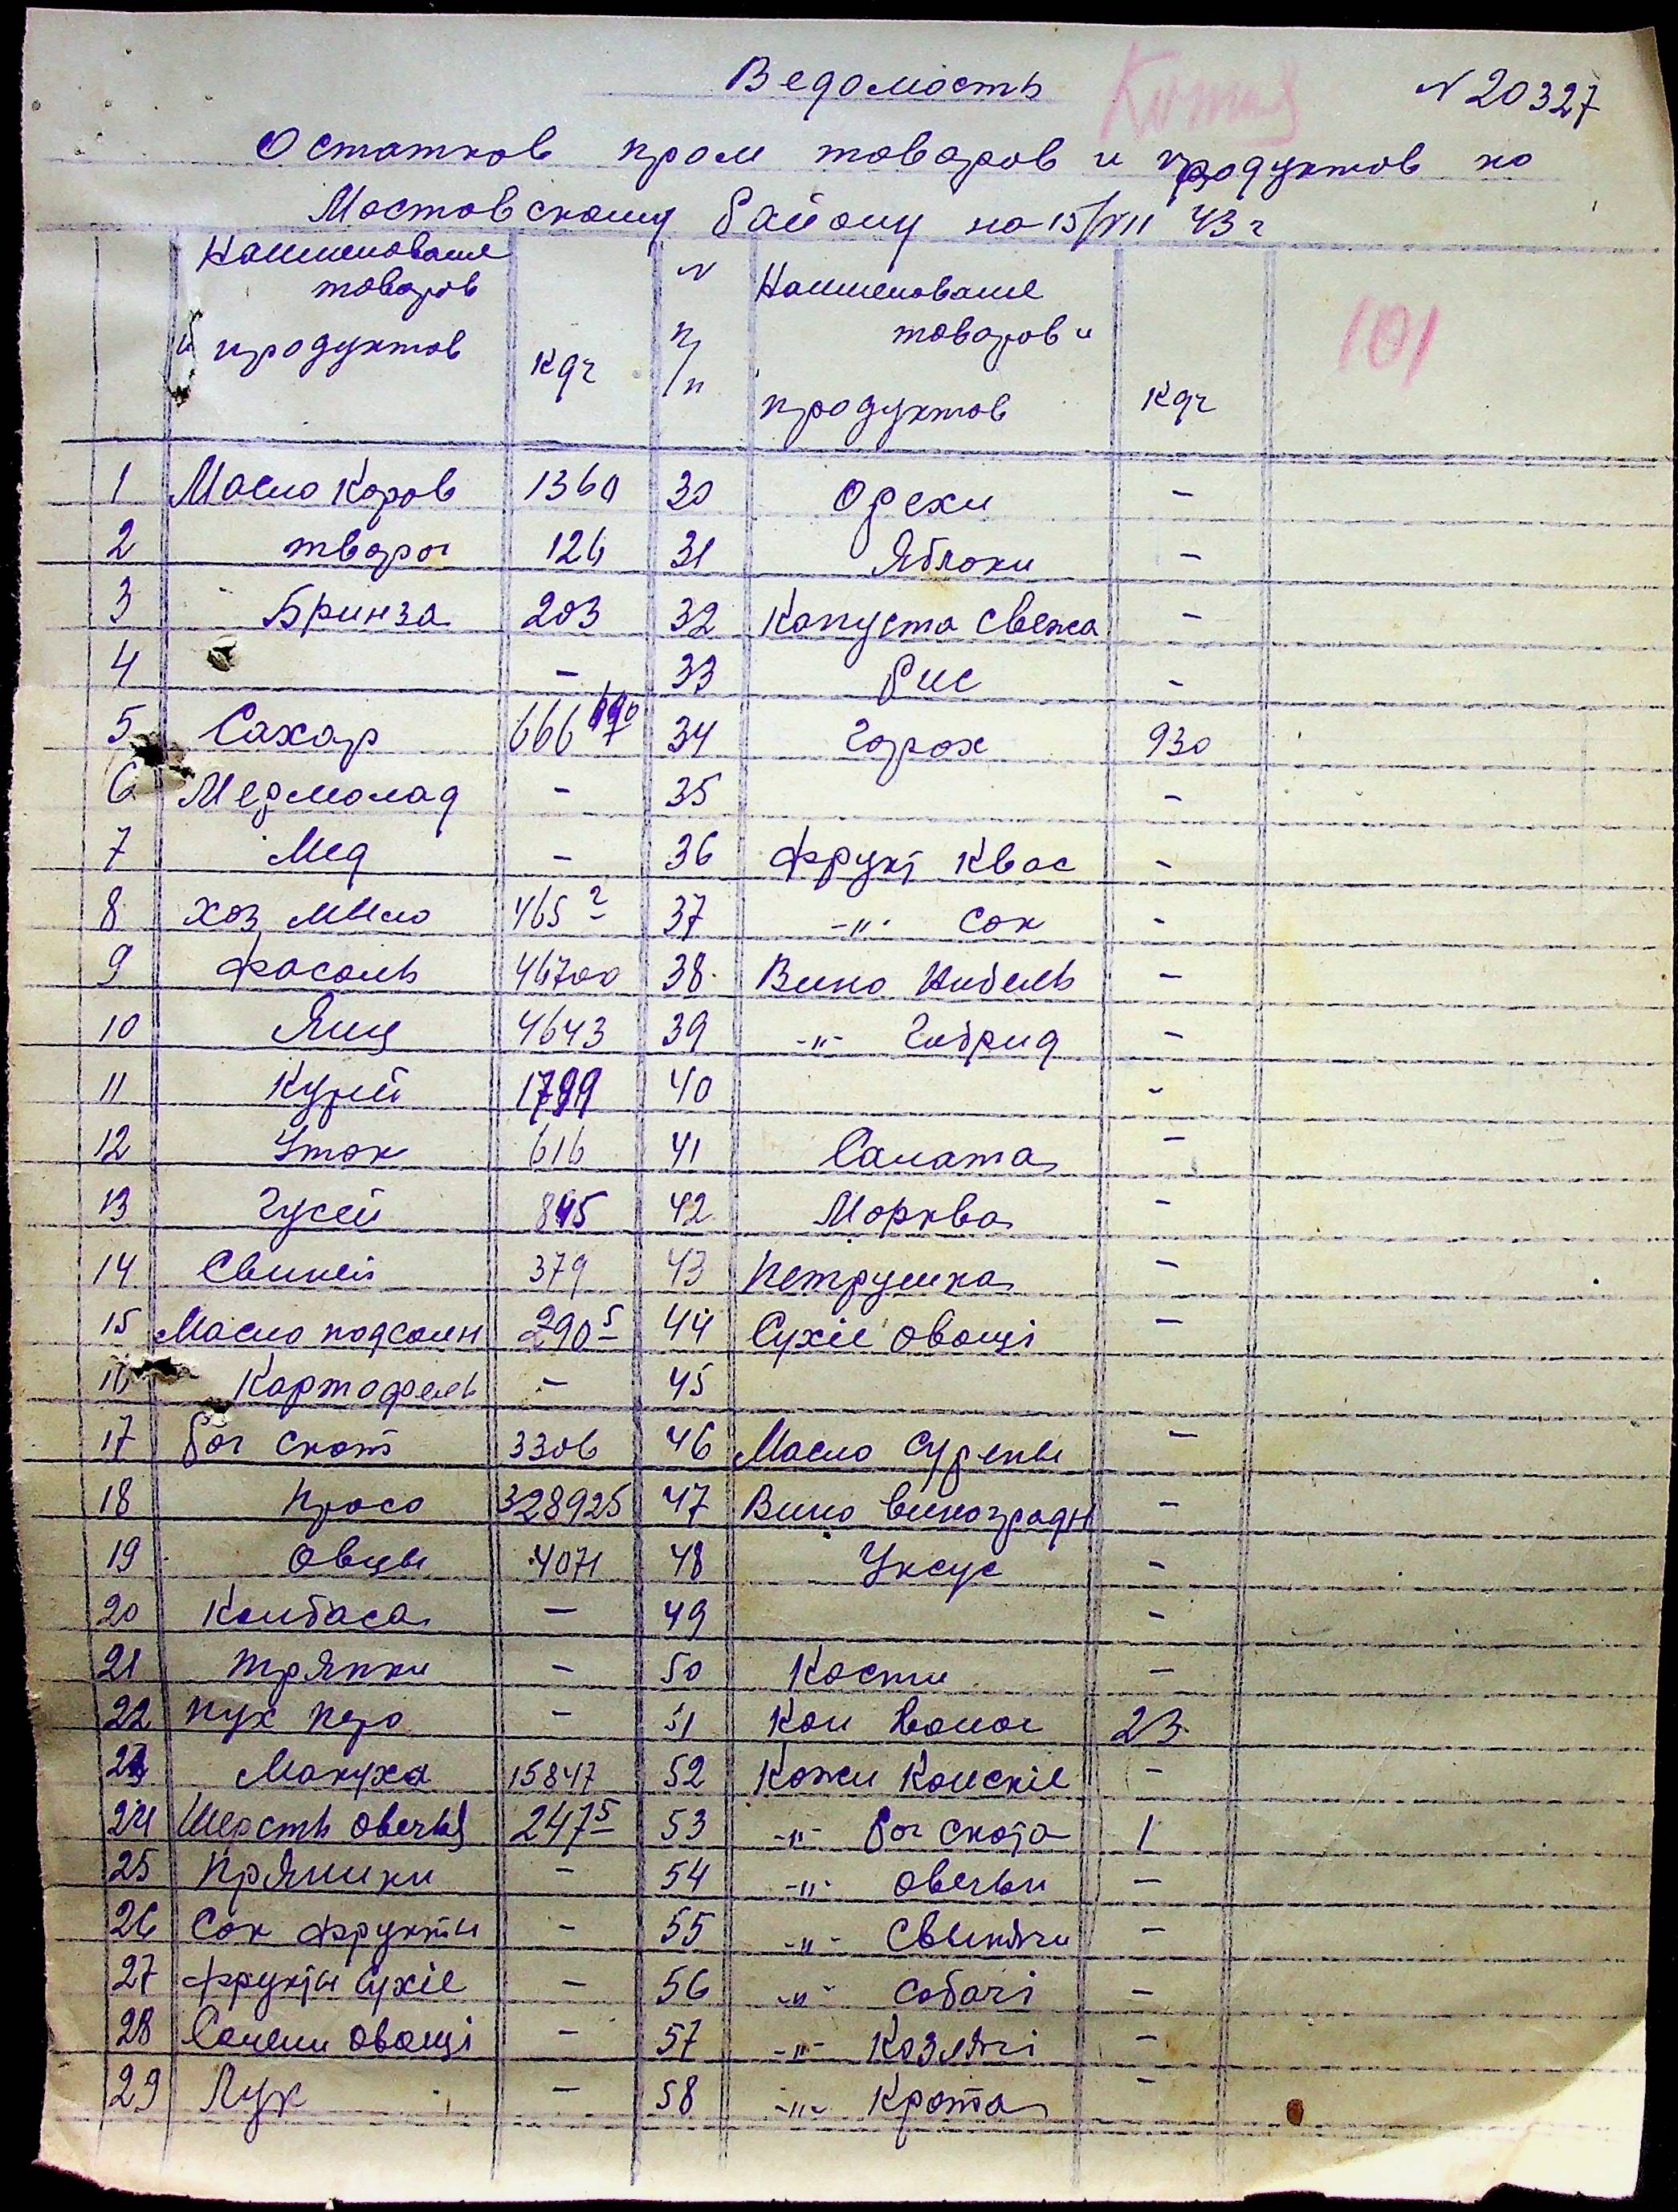 Ведомость
N 20327
Остатков пром товаров и продуктов по
Мостовскому району на 15/VII 43 г
Наименование товаров и продуктов кгр N п/п Наименование товаров и продуктов кгр
101
1 Масло Коров 1360 30 Орехи -
2 творог 126 31 Яблоки -
3 Бринза 203 32 Капуста Свежа -
4 - 33 Рис -
5 Сахар 666 34 Горох 930
6 Мермолад - 35 -
7 Мед - 36 Фрукт Квас -
8 хоз мыло 465 2 37 -"- Сок -
9 Фасоль 46700 38 Вино -
10 Яиц 4643 39 -"- Гибрид -
11 Курей 1799 40 -
12 Уток 616 41 Салата -
13 Гусей 845 42 Морква -
14 Свиней 379 43 Петрушка -
15 Масло подсолн 290 5 44 Сухіе овощі -
16 Картофель - 45
17 Рог скот 3306 46 Масло Сурепы -
18 Просо 328925 47 Вино виноградн -
19 Овцы 4071 48 Уксус -
20 Колбаса - 49 -
21 тряпки - 50 Кости -
22 Пух перо - 51 Кон волос 23
23 Макуха 15847 52 Кожи Конскіе -
24 Шерсть овечья 247 5 53 -"- Рог скота 1
25 Пряники - 54 -"- овечьи -
26 Сок фрукты - 55 -"- Свынячи -
27 Фрукты Сухіе - 56 -"- Собачі -
28 Солены овощі - 57 -"- Козлячі -
29 Лук - 58 -"- Крота -